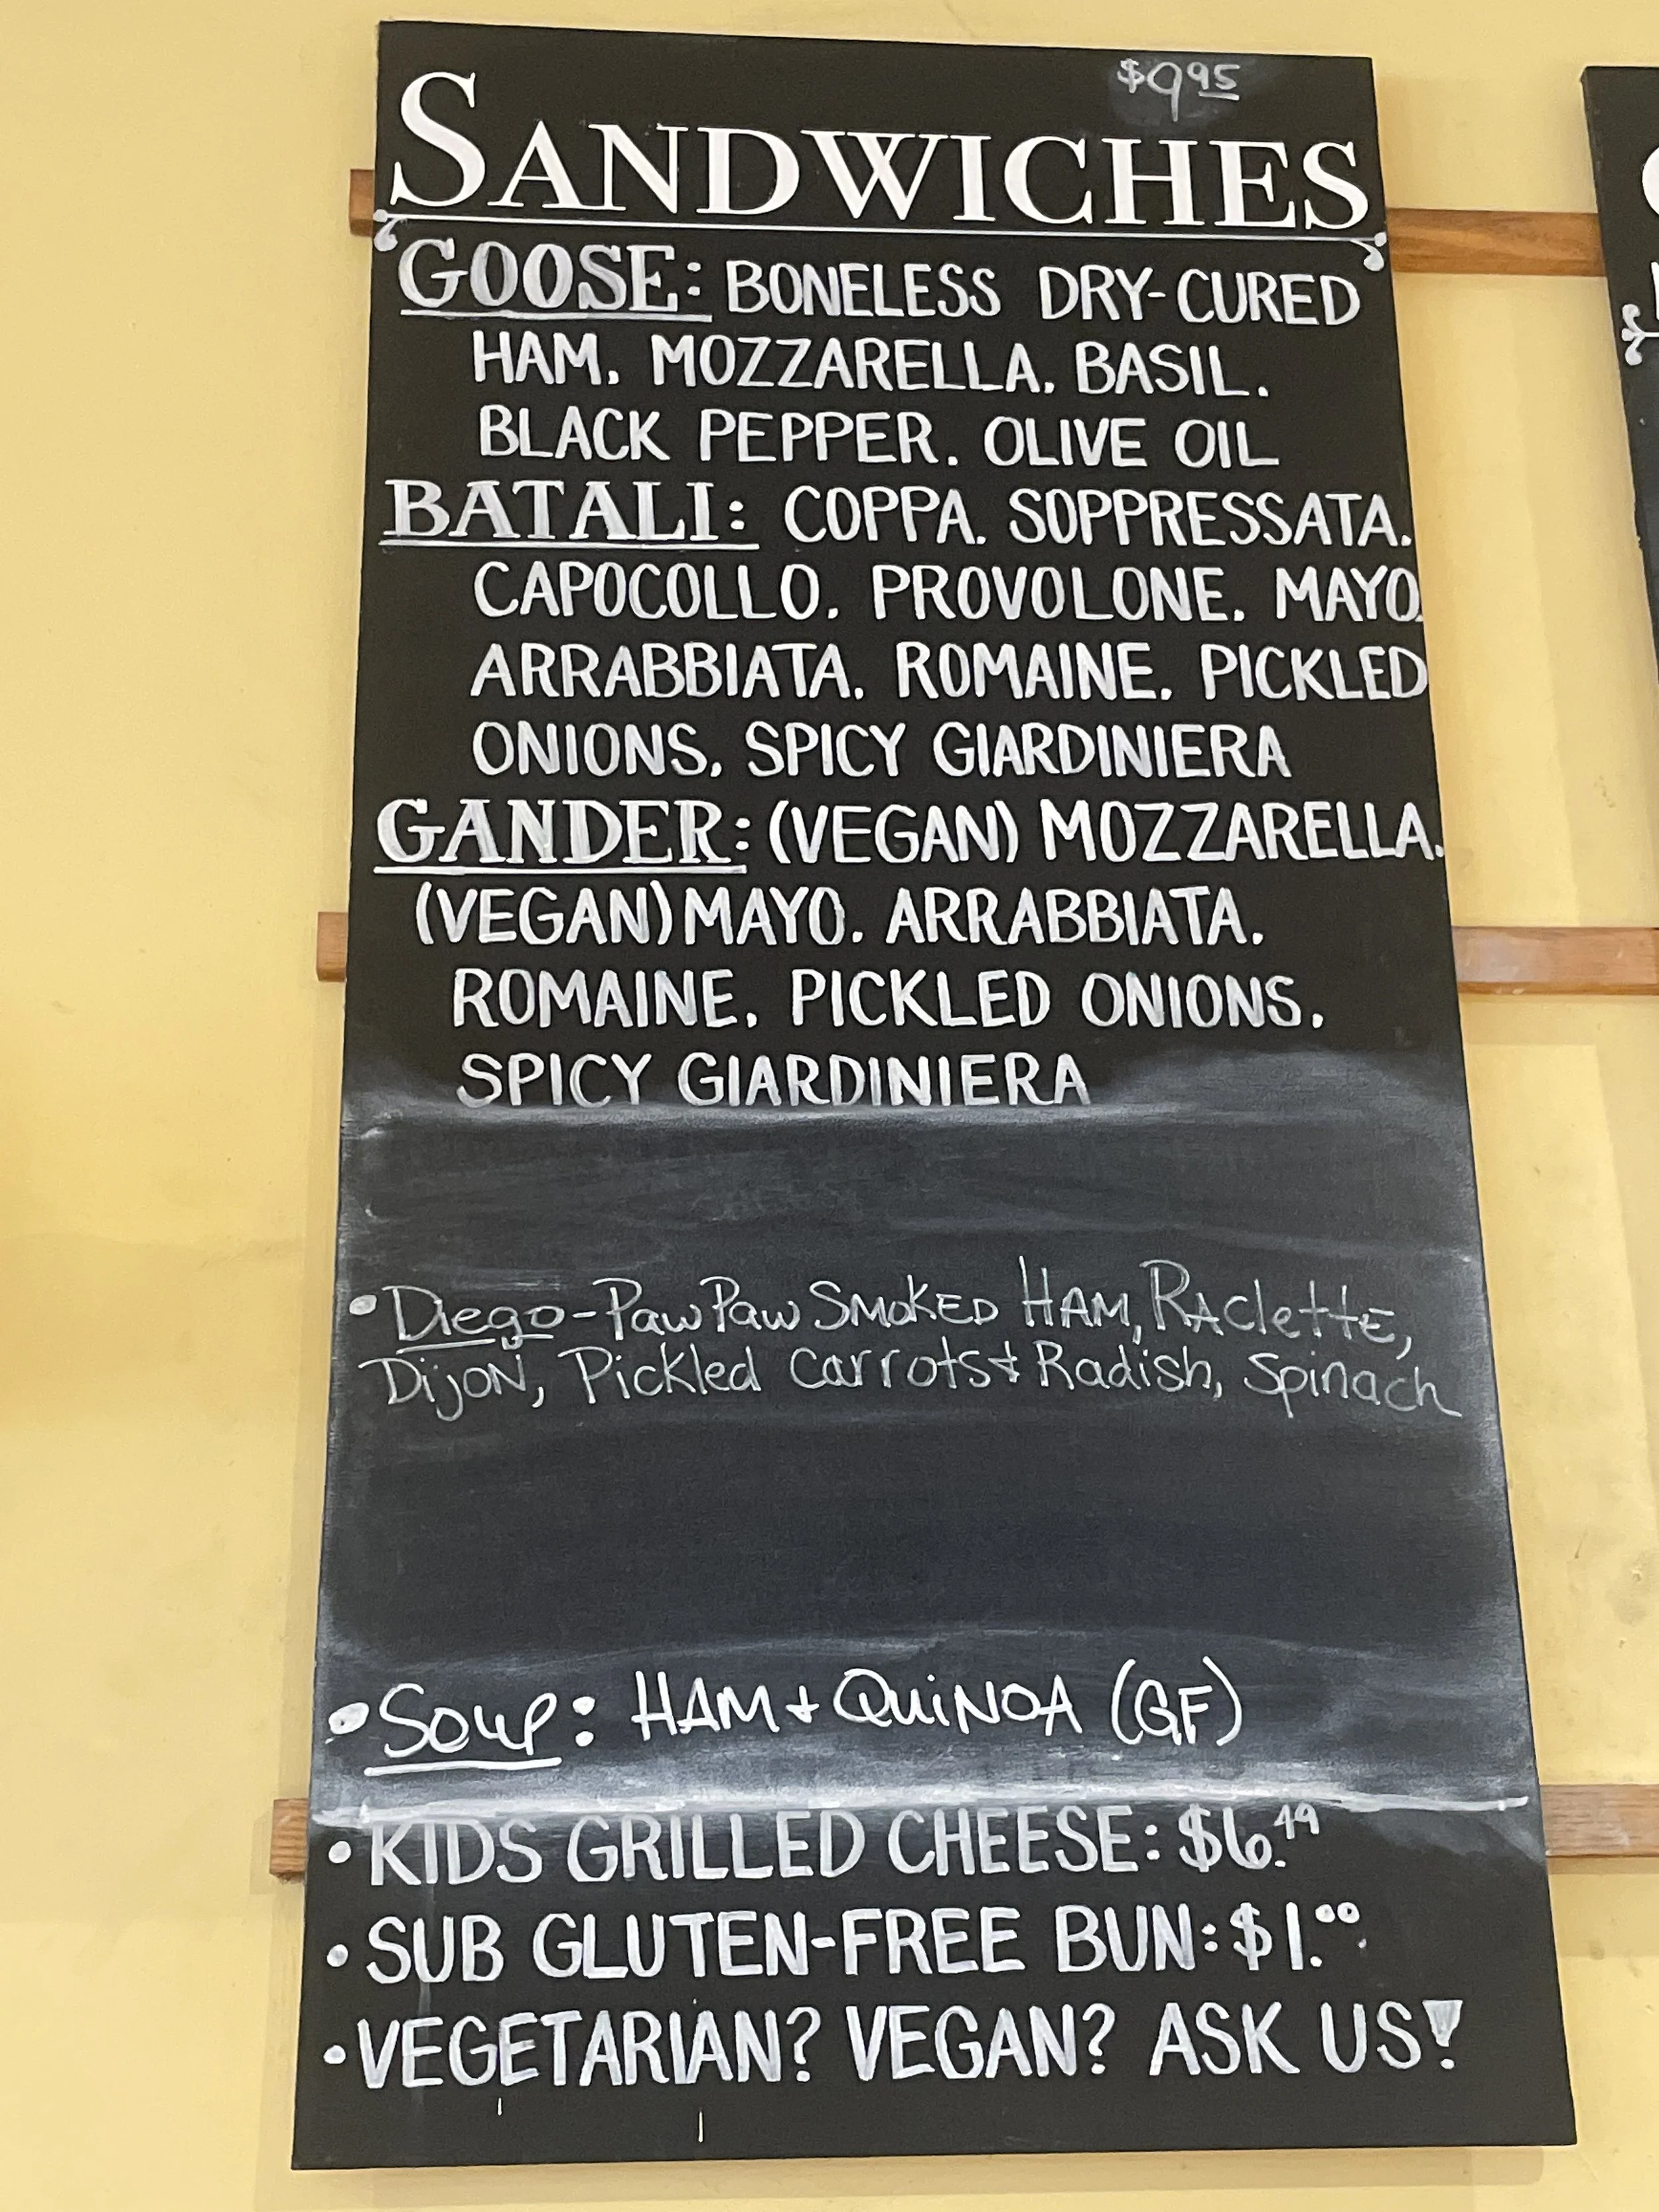 $9.95
SANDWICHES
GOOSE: BONELESS DRY-CURED
HAM. MOZZARELLA. BASIL.
BLACK PEPPER. OLIVE OIL
BATALI: COPPA. SOPPRESSATA.
CAPOCOLLO. PROVOLONE. MAYO.
ARRABBIATA. ROMAINE. PICKLED
ONIONS. SPICY GIARDINIERA
GANDER: (VEGAN) MOZZARELLA.
(VEGAN) MAYO. ARRABBIATA.
ROMAINE. PICKLED ONIONS.
SPICY GIARDINIERA
• Diego - PawPaw SMOKED HAM, RAClettE,
DijoN, Pickled Carrots & Radish, Spinach
• Soup: HAM + QuiNOA (GF)
• KIDS GRILLED CHEESE: $6.49
• SUB GLUTEN-FREE BUN: $1.00
• VEGETARIAN? VEGAN? ASK US!